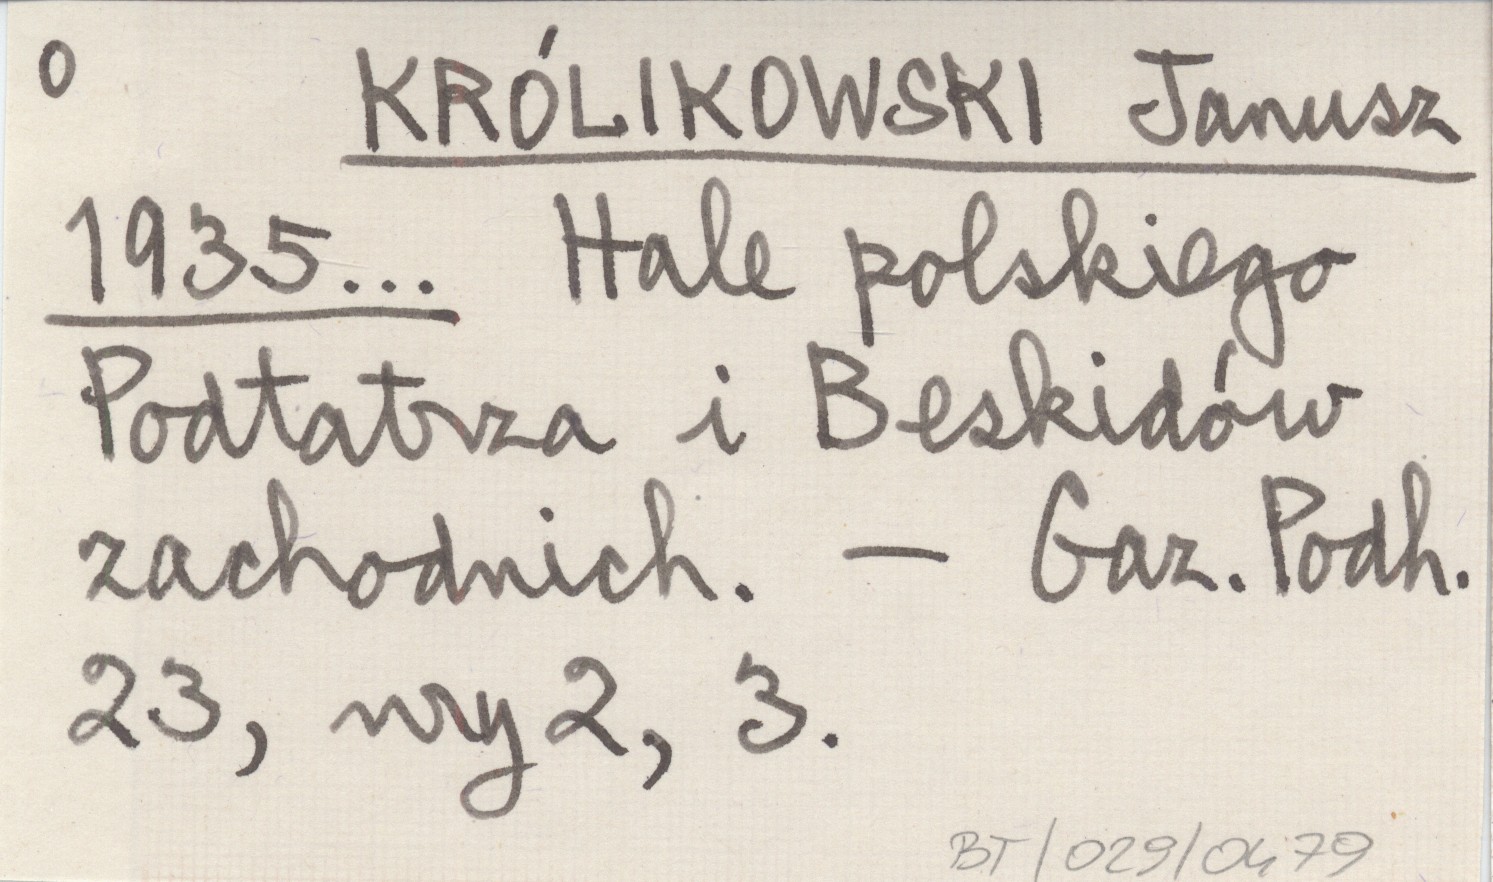 0 KRÓLIKOWSKI Janusz
1935... Hale polskiego
Podtatrza i Beskidów
zachodnich. — Gaz. Podh.
23, nry 2, 3.
BT/029/0479